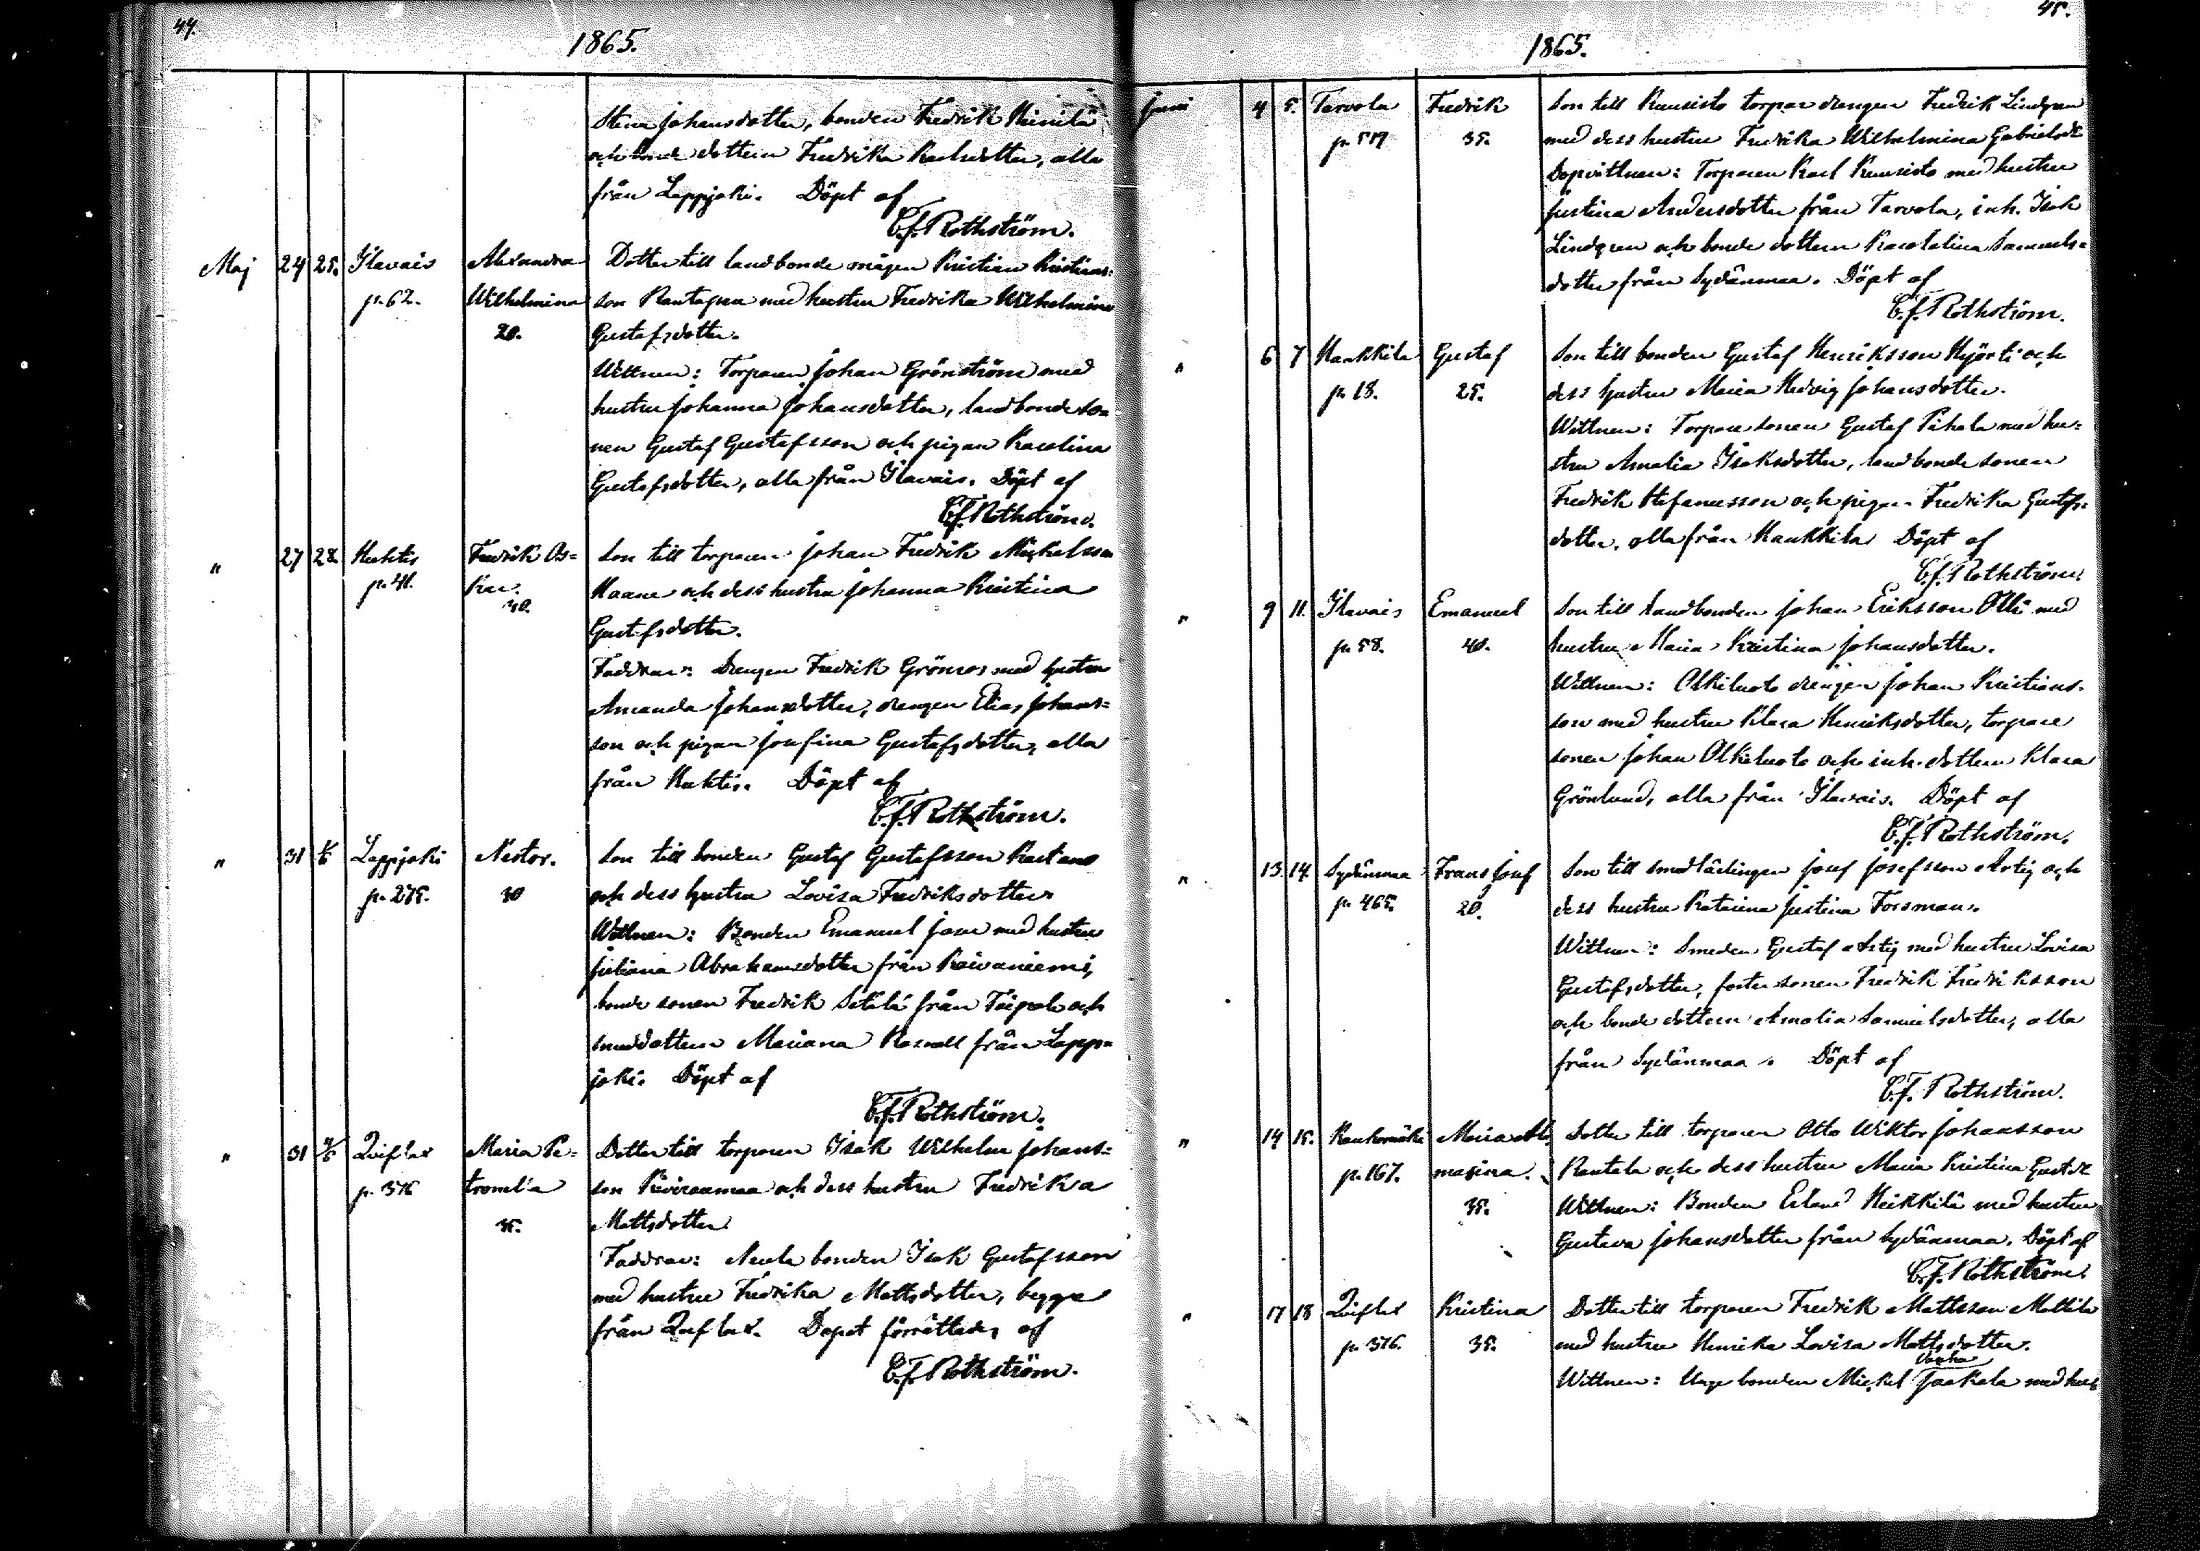 44.
1865.
Stina Johansdotter, bonden Fredrik Heinilä
och bonde dottern Fredrika Karlsdotter, alla
från Lappjoki. Döpt af
C.f. Rothström.
Maj 24 25. Ilavais Alexandra Dotter till landbonde mågen Kristian Kristians-
p. 62. Wilhelmina son Rantapree med hustru Fredrika Wilhelmina
20. Gustafsdotter.
Wittnen: Torparen Johan Grönström med
hustru Johanna Johansdotter, landbonde so-
nen Gustaf Gustafsson och pigan Karolina
Gustafsdotter, alla från Ilavais. Döpt af
C.f. Rothström.
" 27 28. Huhtis Fredrik Os- Son till torparen Johan Fredrik Michelsson
p. 41. kar. Haane och dess hustru Johanna Kristina
30. Gustafsdotter.
Faddrar: Drengen Fredrik Grönroos med hustru
Amanda Johansdotter, drengen Elias Johans-
son och pigan Josefina Gustafsdotter, alla
från Huhtis. Döpt af
C.f. Rothström.
" 31 1/6 Lappjoki Nestor. Son till bonden Gustaf Gustafsson
p. 275. 30 och dess hustru Lovisa Fredriksdotter
Wittnen: Bonden Emanuel Jaa med hustru
Juliana Abrahamsdotter från Kaivaniemi,
bonde sonen Fredrik Setälä från Taipale och
smeddottern Mariana Rosvall från Lapp-
joki. Döpt af
C.f. Rothström.
" 31 Quiflax Maria Pe- Dotter till torparen Isak Wilhelm Johans-
p. 376 tronella son Pivirauma och dess hustru Fredrika
35. Mattsdotter
Faddrar: Neula bonden Isak Gustafsson
med hustru Fredrika Mattsdotter, begge
från Quiflax. Dopet förrättades af
C.f. Rothström.
45.
1865.
Juni 4 5. Tarvola Fredrik Son till Kuusisto torpare drengen Fredrik Lindgren
p. 517 35. med dess hustru Fredrika Wilhelmina Gabrielsdr
Dopvittnen: Torparen Karl Kuusisto med hustru
Justina Andersdotter från Tarvola, inh. Isak
Lindgren och bonde dottern Karolina Samuels-
dotter från Sydänmaa. Döpt af
C.f. Rothström.
" 6 7 Hankkila Gustaf Son till bonden Gustaf Henriksson Hyörti och
p. 18. 25. dess hustru Maria Hedvig Johansdotter.
Wittnen: Torpare sonen Gustaf Pihala med hu-
stru Amalia Isaksdotter, landbonde sonen
Fredrik Stefanusson och pigan Fredrika Gustafs-
dotter, alla från Hankkila Döpt af
C.f. Rothström.
" 9 11. Ilavais Emanuel Son till landbonden Johan Eriksson Olli med
p. 58. 40. hustru Maria Kristina Johansdotter.
Wittnen: Olkiluoto drengen Johan Kristians-
son med hustru Klara Henriksdotter, torpare
sonen Johan Olkiluoto och inh. dottern Klara
Grönlund, alla från Ilavais. Döpt af
C.f. Rothström.
" 13 14 Sydänmaa Frans Josef Son till smedlärlingen Josef Josefsson Artig och
p. 465. 20. dess hustru Katarina Justina Forsman.
Wittnen: Smeden Gustaf Artig med hustru Lovisa
Gustafsdotter, foster sonen Fredrik Fredriksson
och bonde dottern Amalia Samuelsdotter, alla
från Sydänmaa. Döpt af
C.f. Rothström.
" 14 15. Kaukomäki Maria Dotter till torparen Otto Wiktor Johansson
p. 167. Rantala och dess hustru Maria Kristina Gustdr
35. Wittnen: Bonden Erland Heikkilä med hustru
Gustava Johansdotter från Sydänmaa. Döpt af
C.f. Rothström.
" 17 18 Quiflax Kristina Dotter till torparen Fredrik Mattsson Mattila
p. 376. 35. med hustru Henrika Lovisa Mattsdotter.
Vanha
Wittnen: Unge bonden Mickel Jaakala med hus-